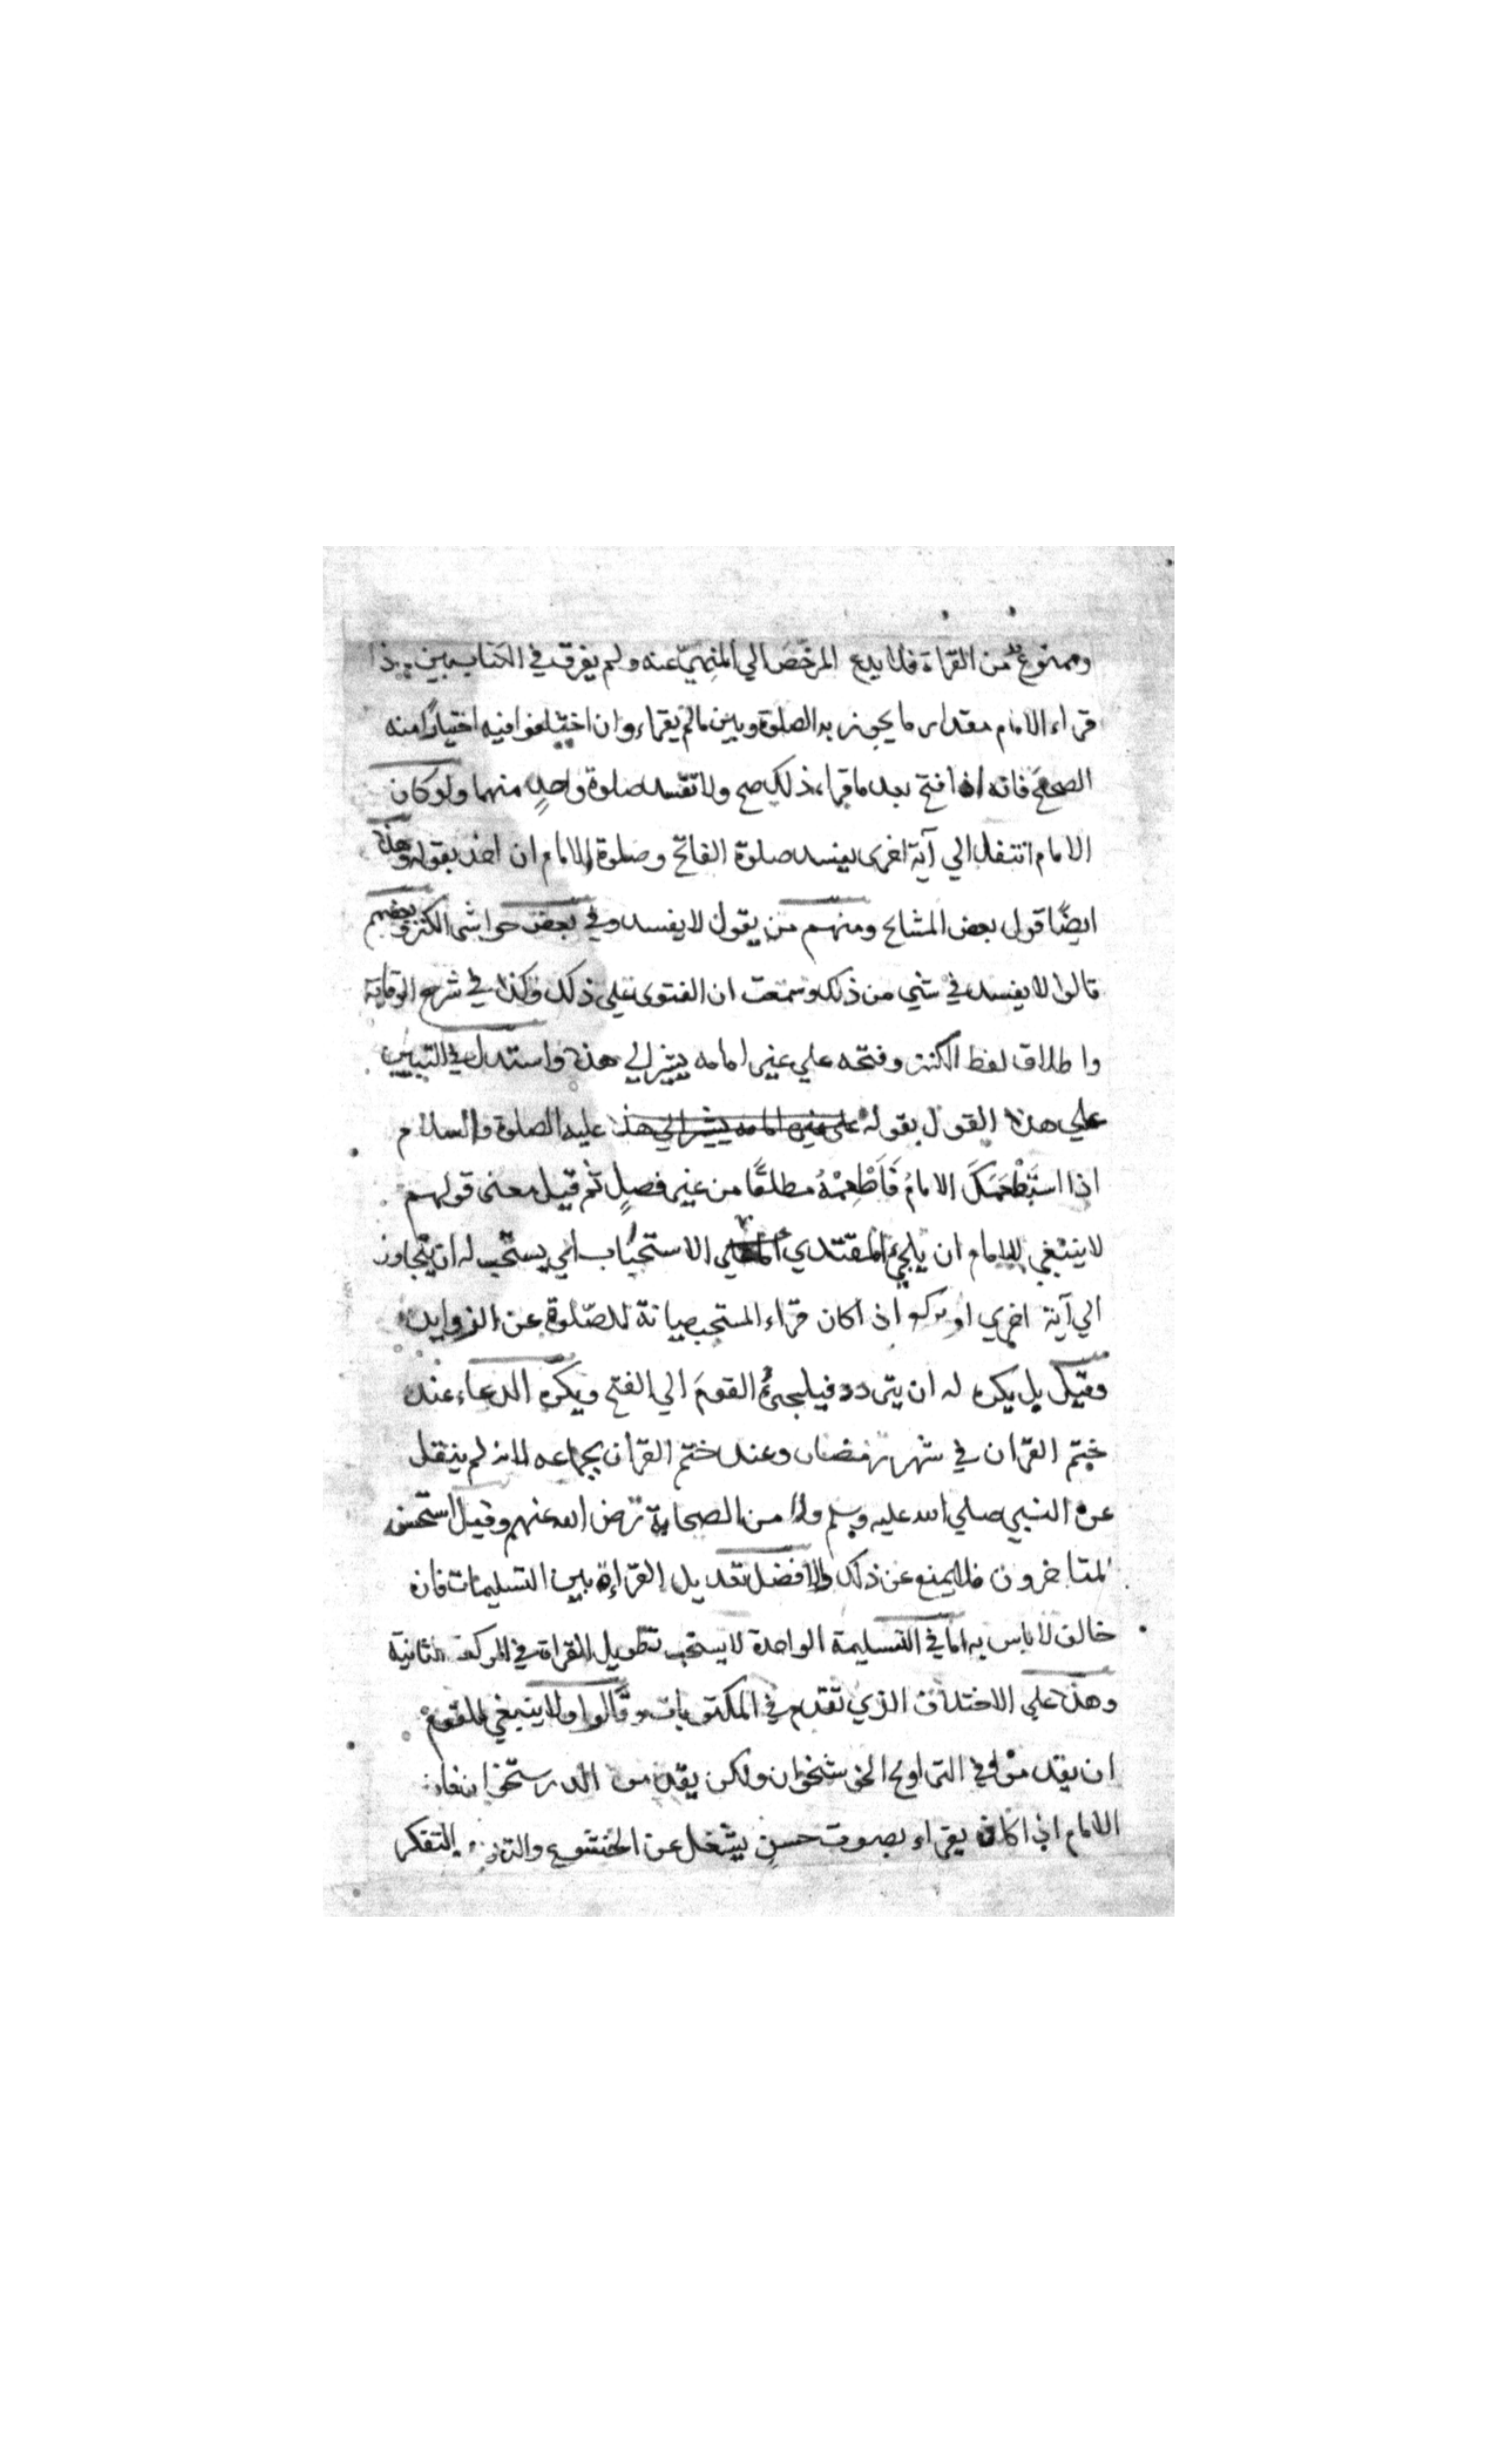 وممنوع عن القراة فلا يدع المرخّصَ الي المنهيّ عنه ولم يفرق في الكتاب بين
قراء الامام مقدار ما يجوز به الصلوة وبين مالم يقراء وان اختلفوا فيه اختيارًا منه
الصحة فانه اذا فتح بعد ما قراء ذلك صح ولا تفسد صلوة واحدٍ منهما ولو كان
الامام انتقل الي آية اخرى يفسد صلوة الفاتح وصلوة الامام ان اخذ بقوله وهذا
ايضًا قول بعض المشائخ ومنهم من يقول لا يفسد وفي بعض حواشي الكنز وبعضهم
قالوا لا يفسد في شي من ذلك وسمعت ان الفتوى علي ذلك وكذا في شرح الوقاية
واطلاق لفظ الكنز وفتحه علي غير امامه يشير الي هذا واستدل في التبيين
علي هذا القول بقوله علي غير امامه يشير الي هذا عليه الصلوة والسلام
اذا استَطْعَمَكَ الامامُ فَاَطْعِمْهُ مطلقًا من غير فصلٍ ثم قيل معنى قولهم
لا ينبغي للامام ان يلجئ المقتدي الاستحباب اي يستحب له ان يتجاوز
الي آية اخري او يركع اذا كان قراء المستحب صيانة للصّلوة عن الزوايد
وقيل بل يكره له ان يتردد فيلجئُ القومَ الي الفتح ويكره الدعاء عند
ختم القران في شهر رمضان وعند ختم القران بجماعه لانه لم ينقل
عن النبي صلي الله عليه وسلم ولا من الصحابة رض الله عنهم وقيل استحسن
المتاخرون فلا يمنع عن ذلك والافضل تعديل القراءة بين التسليمات فان
خالف لا باس به اما في التسليمة الواحدة لا يستحب تطويل القراة في الركعة الثانية
وهذا علي الاختلاف الذي تقدم في المكتوبات وقالوا ولا ينبغي للقوم
ان يقدموا في التراويح الخوشخوان ولكن يقدمون الدرستخوان فان
الامام اذا كان يقراء بصوت حسنٍ يشغل عن الخشوع والتدبر والتفكر